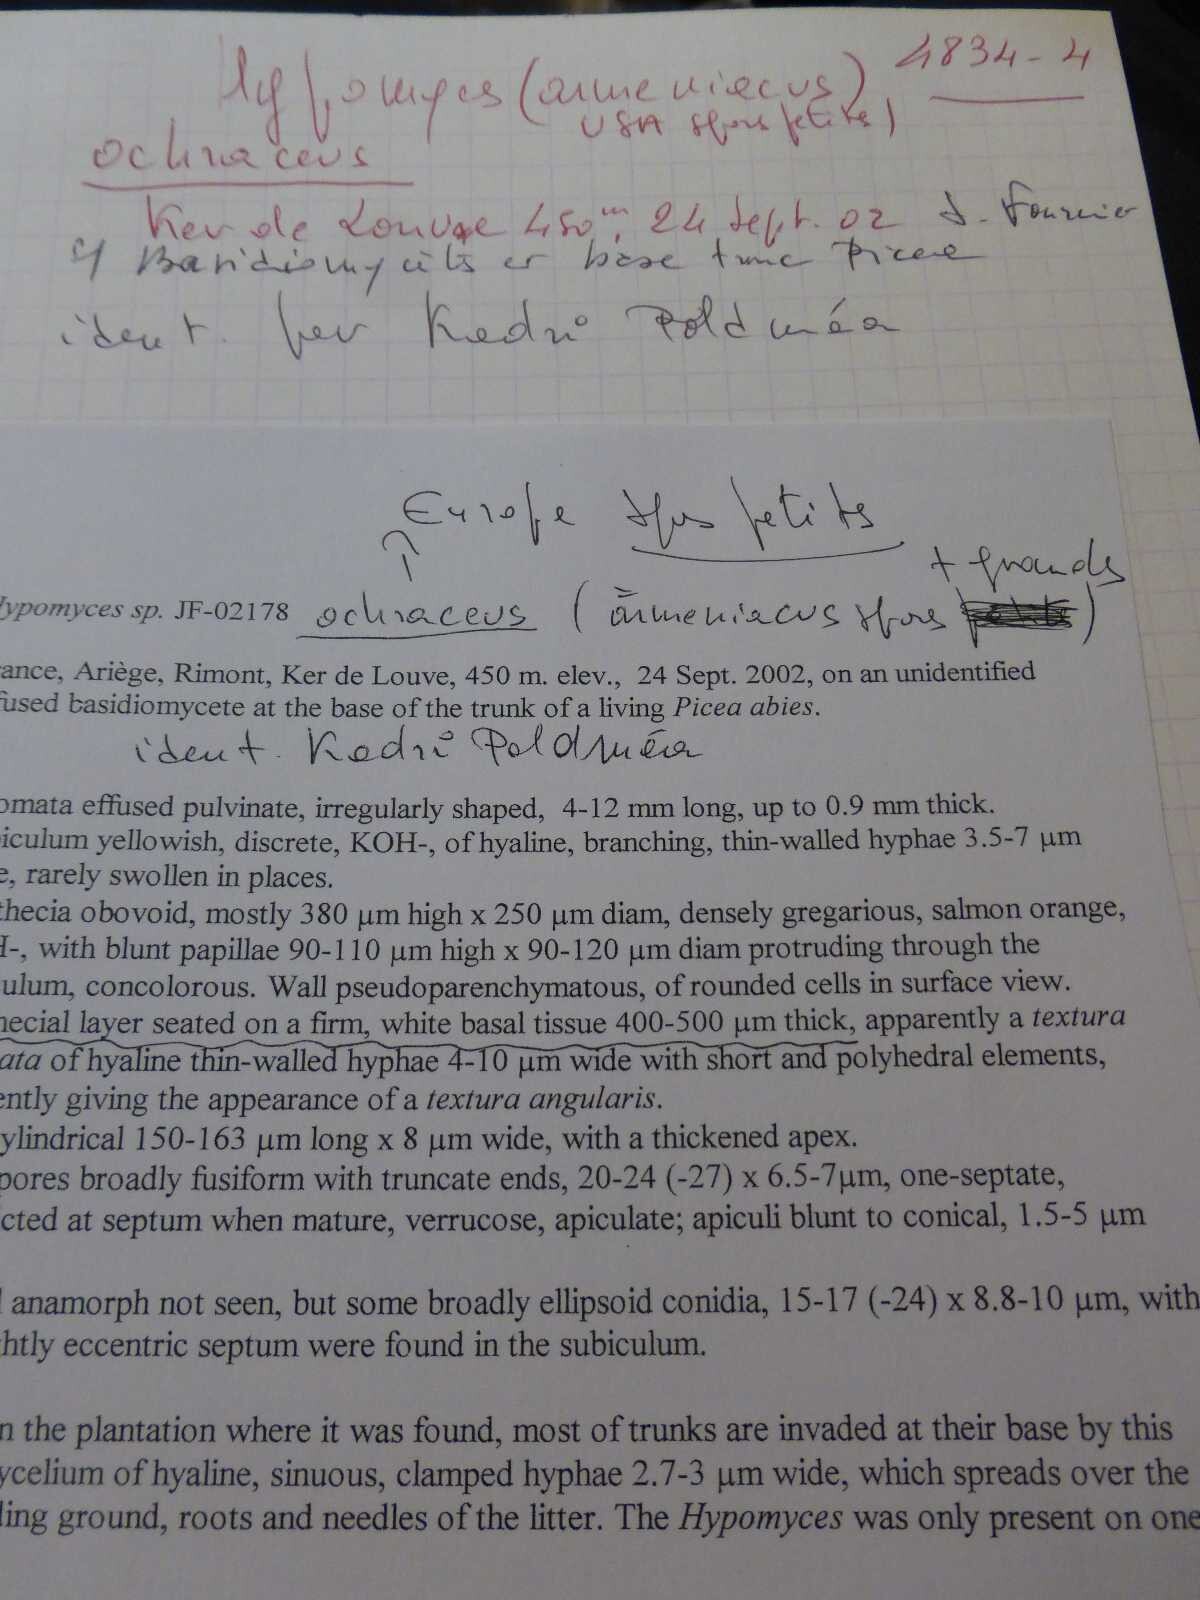 4834-4
Hypomyces (armeniacus)
USA spores petites)
ochraceus
Ker de Louve 450m, 24 Sept. 02 J. Fournier
s/ Basidiomycète base tronc Picea
ident. par Kadri Põldmaa
Europe spores petites
+ grandes
Hypomyces sp. JF-02178 ochraceus (armeniacus spores )
rance, Ariège, Rimont, Ker de Louve, 450 m. elev., 24 Sept. 2002, on an unidentified
fused basidiomycete at the base of the trunk of a living Picea abies.
ident. Kadri Põldmaa
omata effused pulvinate, irregularly shaped, 4-12 mm long, up to 0.9 mm thick.
biculum yellowish, discrete, KOH-, of hyaline, branching, thin-walled hyphae 3.5-7 µm
e, rarely swollen in places.
thecia obovoid, mostly 380 µm high x 250 µm diam, densely gregarious, salmon orange,
H-, with blunt papillae 90-110 µm high x 90-120 µm diam protruding through the
ulum, concolorous. Wall pseudoparenchymatous, of rounded cells in surface view.
hecial layer seated on a firm, white basal tissue 400-500 µm thick, apparently a textura
ata of hyaline thin-walled hyphae 4-10 µm wide with short and polyhedral elements,
ently giving the appearance of a textura angularis.
ylindrical 150-163 µm long x 8 µm wide, with a thickened apex.
pores broadly fusiform with truncate ends, 20-24 (-27) x 6.5-7µm, one-septate,
icted at septum when mature, verrucose, apiculate; apiculi blunt to conical, 1.5-5 µm
l anamorph not seen, but some broadly ellipsoid conidia, 15-17 (-24) x 8.8-10 µm, with
ghtly eccentric septum were found in the subiculum.
n the plantation where it was found, most of trunks are invaded at their base by this
ycelium of hyaline, sinuous, clamped hyphae 2.7-3 µm wide, which spreads over the
ding ground, roots and needles of the litter. The Hypomyces was only present on one